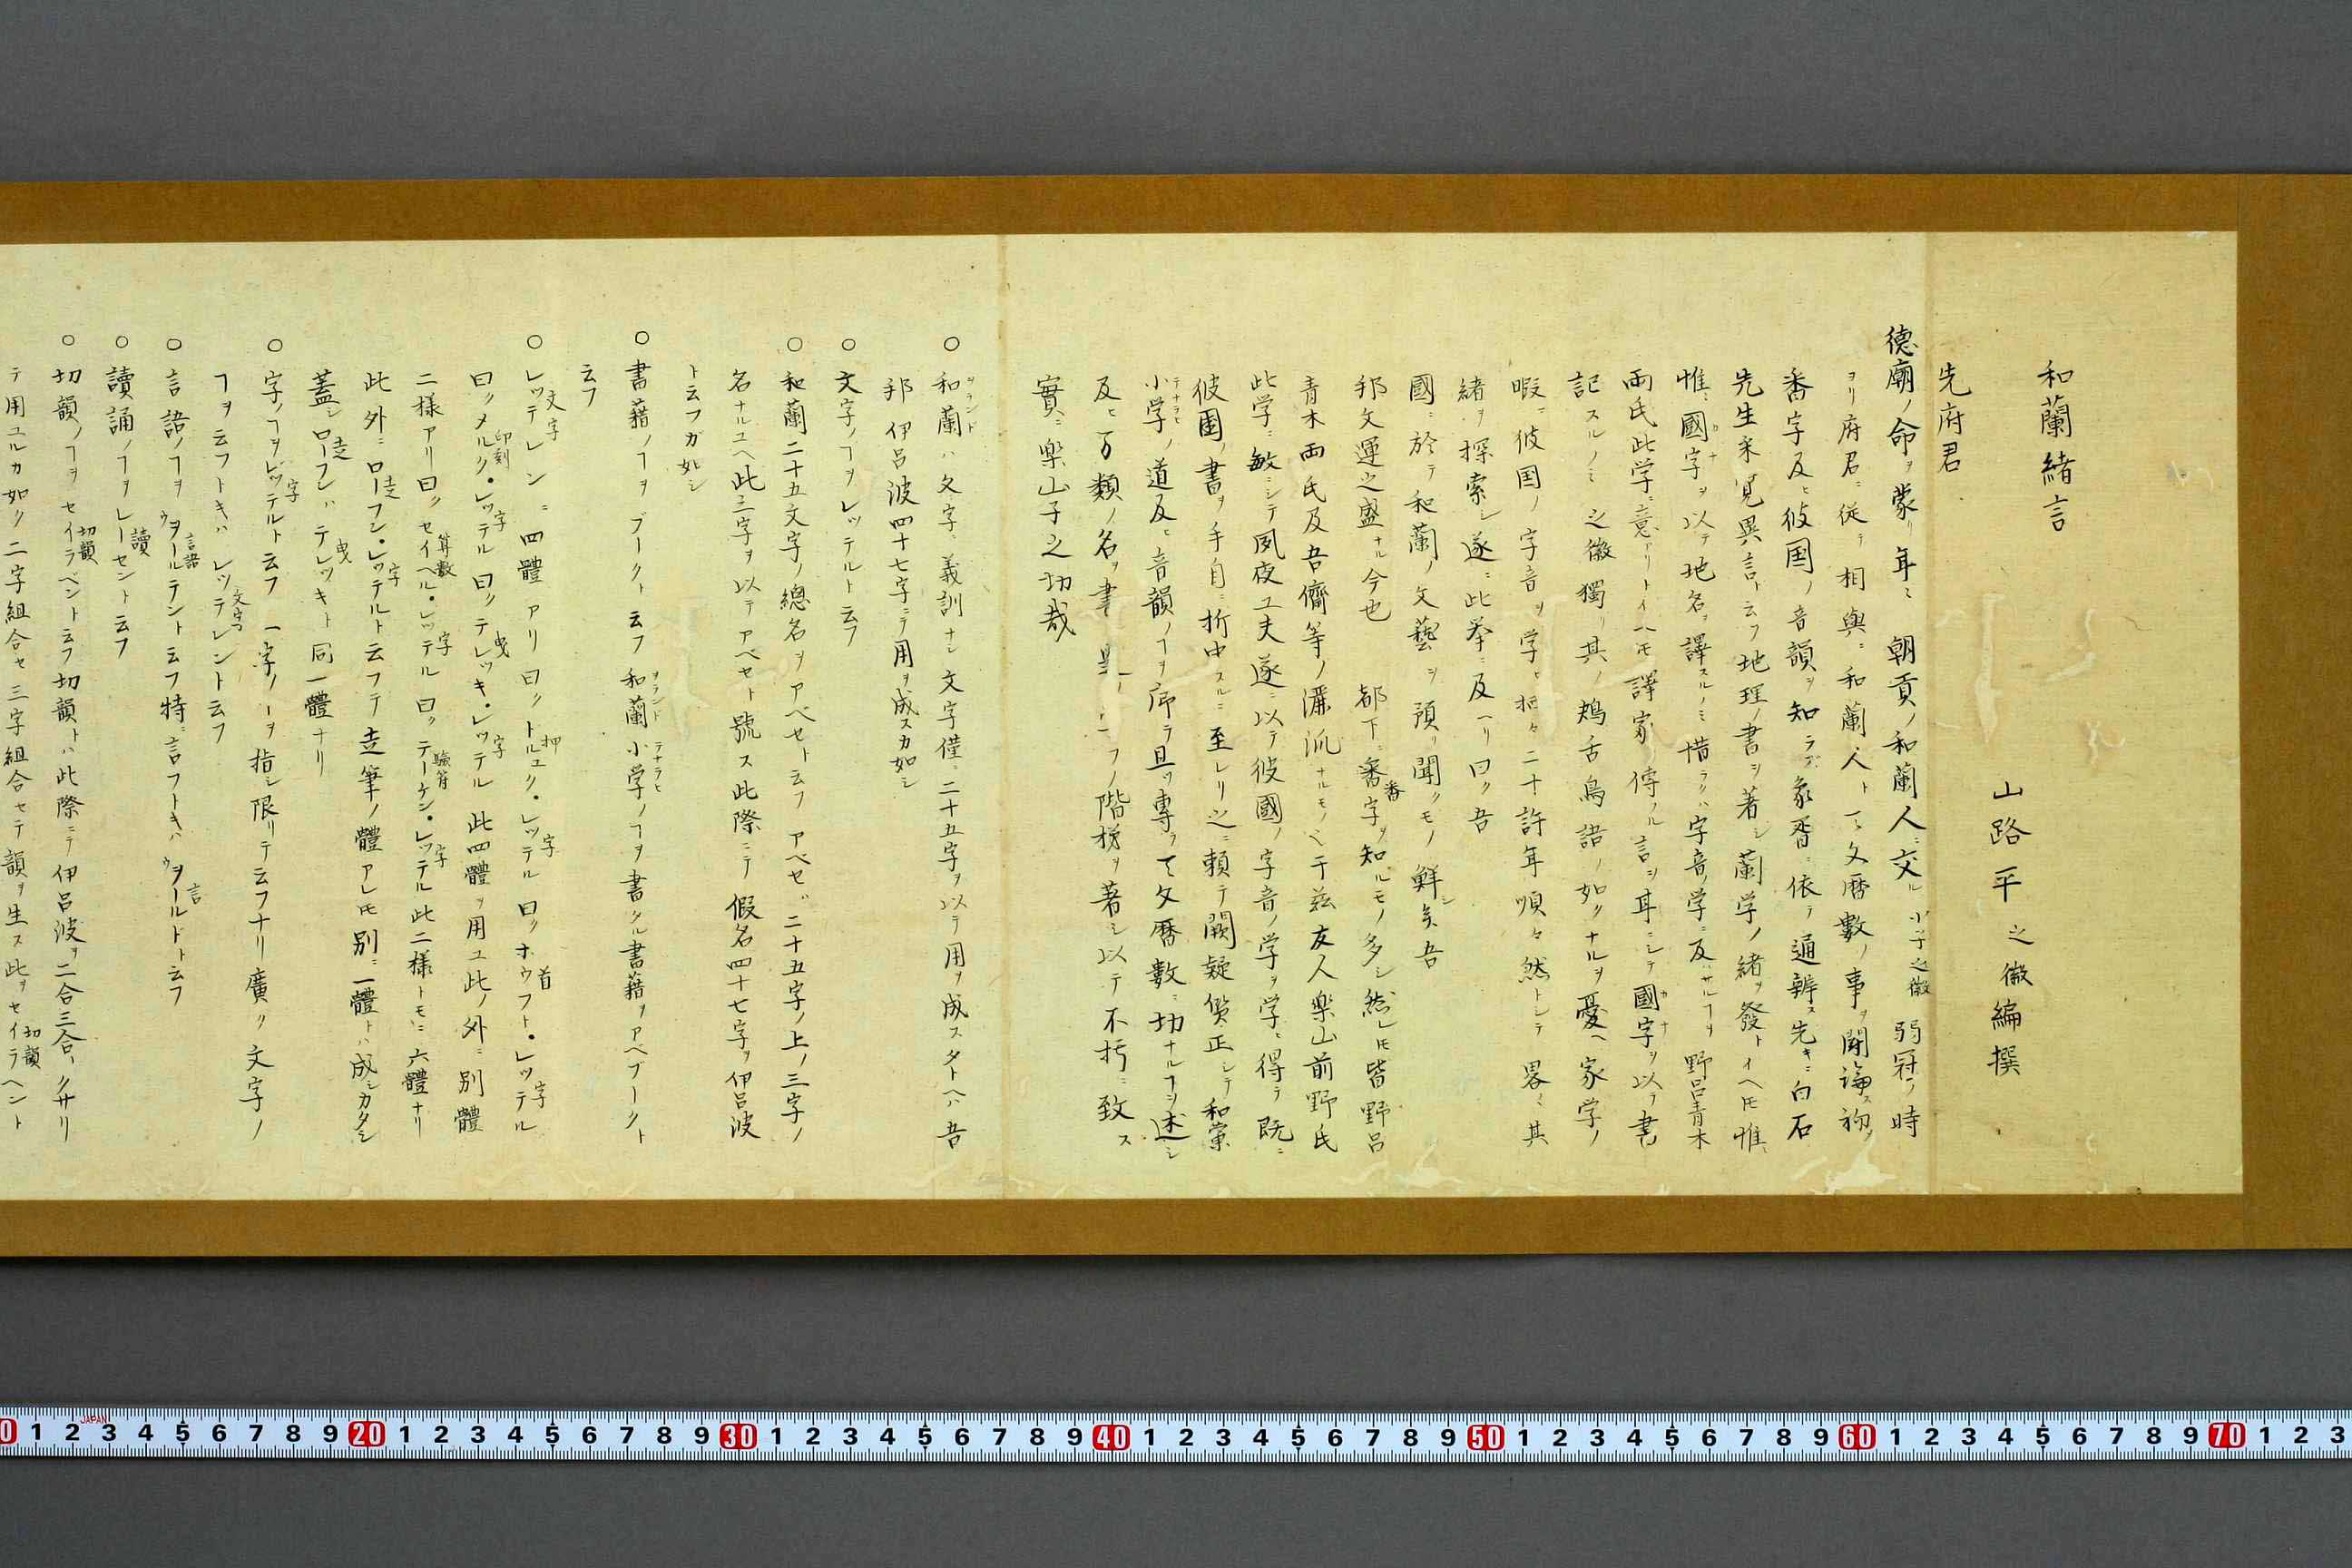 和蘭緒言
山路平之徽編撰
先府君
徳廟ノ命ヲ蒙リ年〻朝貢ノ和蘭人ニ交ル小子之徽弱冠ノ時
ヨリ府君ニ従テ相與ニ和蘭人ト天文暦數ノ事ヲ闘論ス初メ
番字及ヒ彼国ノ音韻ヲ知ラズ象胥ニ依テ通辨ス先キニ白石
先生采覧異言ト云フ地理ノ書ヲ著シ蘭学ノ緒ヲ發トイヘ𪜈惟
惟國字ヲ以テ地名ヲ譯スルノミ惜ラクハ字音ノ学ニ反ハサルヿヲ野呂青木
両氏此学ニ意アリトイヘ𪜈譯家傳ル言ヲ耳ニシテ國字ヲ以テ書
記スルノミ之徽獨リ其ノ鴃舌鳥語ノ如クナルヲ憂ヘ家学ノ
暇ニ彼国ノ字音ヲ学ヒ把々二十許年順々然トシテ畧〻其
緒ヲ探索シ遂ニ此挙ニ及ヘリ曰ク吾
國ニ於テ和蘭ノ文藝ヲ預リ聞クモノ鮮シ矣吾
邦文運之盛ナル今也都下ニ審番字ヲ知ルモノ多シ然レ𪜈皆野呂
青木両氏及吾儕等ノ濂派ナルモノ乀于茲友人楽山前野氏
此学ニ敏ニシテ夙夜工夫遂ニ以テ彼國ノ字音ノ学ヲ学ヒ得テ既ニ
彼圉ノ書ヲ手自ニ折中スルニ至レリ之ニ頼テ闕疑償正シテ和蘭
小学ノ道及ヒ音韻ノヿヲ序テ且ツ專ラ天文暦數ニ功ナルヿヲ述シ
及ヒ万類ノ名ヲ聿ノ階梯ヲ著シ以テ不朽ニ致ス
實ニ楽山子之功哉
○和蘭ハ文字ニ義訓ナシ文字僅ニ二十五字ヲ以テ用ヲ成スタトヘハ吾
邦伊呂波四十七字ニテ用ヲ成スカ如シ
○文字ノヿヲレッテルト云フ
○和蘭二十五文字ノ總名ヲアベセト云フアベセハ二十五字ノ上ノ三字ノ
名ナルユヘ此三字ヲ以テアベセト號ス此際ニテ假名四十七字ヲ伊呂波
ト云フガ如シ
○書藉ノヿヲブークト云フ和蘭小学ノヿヲ書タル書藉ヲアベブークト
云フ
○レッテレンニ四體アリ曰クトルュク・レッテル曰クホウフト・レッテル
曰クメルク・レッテル曰クテレッキ・レッテル此四體ヲ用ユ此ノ外ニ別體
二樣アリ曰クセイヘル・レッテル曰クテーケン・レッテル此二樣トモニ六體ナリ
此外ニローフン・レッテルト云フテ走筆ノ體アレ𪜈別ニ一體トハ成シカタシ
蓋シローフンハテレッキト同一體ナリ
○字ノヿヲレッテルト云フ一字ノヿヲ指シ限リテ云フナリ廣ク文字ノ
ヿヲ云フトキハレッテレント云フ
○言語ノヿヲヲールテント云フ特ニ言フトキハヲールドト云フ
○讀誦ノヿヲレーセント云フ
○切韻ノヿヲセイラベント云フ切韻トハ此際ニテ伊呂波ヲ二合三合ノ
テ用ユルカ如ク二字組合セ三字組合セテ韻ヲ生ス此ヲセイラヘント
0 1 2 3 4 5 6 7 8 9 20 1 2 3 4 5 6 7 8 9 30 1 2 3 4 5 6 7 8 9 40 1 2 3 4 5 6 7 8 9 50 1 2 3 4 5 6 7 8 9 60 1 2 3 4 5 6 7 8 9 70 1 2 3
JAPAN